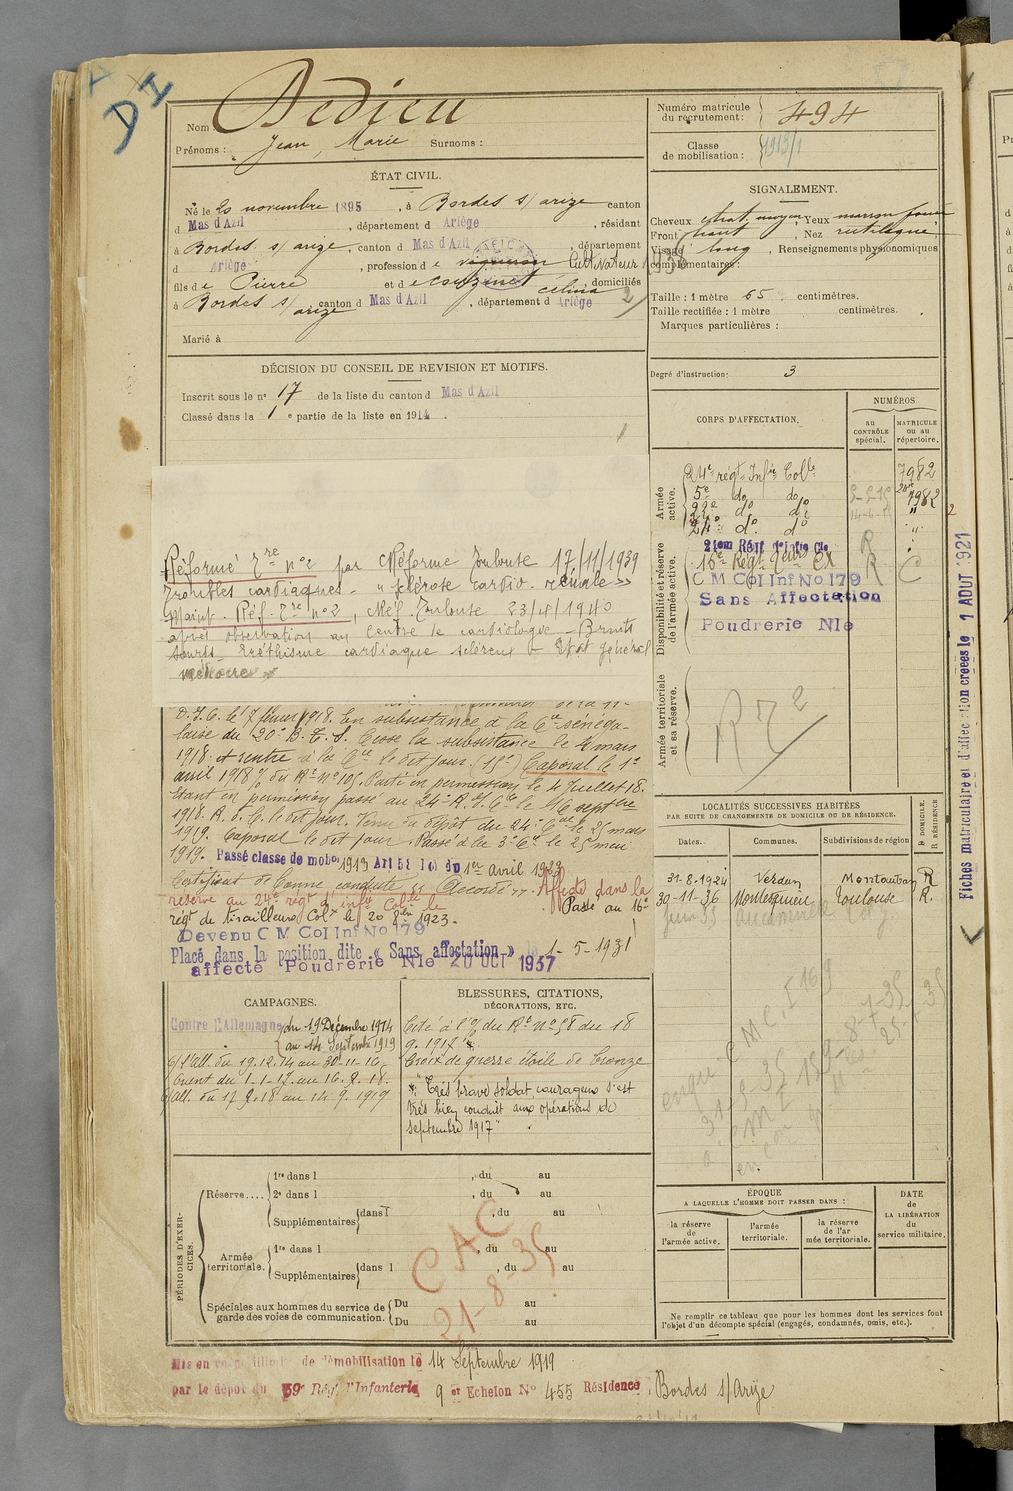 DI
Nom : Dedieu
Prénoms : Jean, Marie Surnoms :
Numéro matricule du recrutement : 494
Classe de mobilisation : 1913/1
ÉTAT CIVIL.
Né le 20 novembre 1895, à Bordes s/ arize canton
d Mas d'Azil, département d Ariège, résidant
à Bordes s/ arize, canton d Mas d'Azil, département
d Ariège, profession de vigneron Cultivateur
fils de Pierre et de Couzinet Célina, domiciliés
à Bordes s/ arize, canton d Mas d'Azil, département d Ariège 2
Marié à
SIGNALEMENT.
Cheveux chat. moyen, Yeux marron foncé
Front haut, Nez rectiligne
Visage long, Renseignements physionomiques
complémentaires :
Taille : 1 mètre 65 centimètres.
Taille rectifiée : 1 mètre centimètres.
Marques particulières :
Degré d'instruction : 3
DÉCISION DU CONSEIL DE REVISION ET MOTIFS.
Inscrit sous le n° 17 de la liste du canton d Mas d'Azil
Classé dans la 1e partie de la liste en 1914.
Réformé Tre n°2 par C Réforme Toulouse 17/11/1939
Troubles cardiaques - "sclérose cardio-rénale"
Maint. Réf. Tre n°2, Réf. Toulouse 23/4/1940
après observation au Centre de cardiologie - Bruits
sourds - Eréthisme cardiaque scléreux - Etat général
médiocre
D.I.C. le 7 février 1918. En subsistance à la Cie sénéga-
laise du 20e B.T.S. Cesse la subsistance le 4 mars
1918 et rentre à la Cie le dit jour. Caporal le 1er
avril 1918 % du Rt n°105. Parti en permission le 4 juillet 18.
Etant en permission passé au 24e R.I.Cle le 16 septbre
1918. R.d.C. le dit jour. Venu du dépôt du 24e Cal le 25 mars
1919. Caporal le dit jour. Passé à la 3e Cie le 25 mai
1919. Passé classe de mobon 1913 Art 58 Loi du 1er avril 1923
Certificat de bonne conduite "Accordé". Affecté dans la
réserve au 24e régt d'infie Colle le Passé au 16e
régt de tirailleurs Colx le 20 8bre 1923.
Devenu C M Col Inf No 179
Placé dans la position dite « Sans affectation » le 1-5-1931
affecté Poudrerie Nle 20 OCT 1937
CORPS D'AFFECTATION.
NUMÉROS
au CONTRÔLE spécial.
MATRICULE ou au répertoire.
Armée active.
24e régt Infie Colle 7982
5e do do
22e do do 7982
24e do do
Disponibilité et réserve de l'armée active.
24em Régt d'Infie Cle R
16e Régt Tirrs Cx R C
C M Col Inf No 179
Sans Affectation
Poudrerie Nle
Armée territoriale et sa réserve.
RT2
LOCALITÉS SUCCESSIVES HABITÉES
PAR SUITE DE CHANGEMENTS DE DOMICILE OU DE RÉSIDENCE.
Dates. Communes. Subdivisions de région. D DOMICILE. R RÉSIDENCE
31-8-1924 Verdun Montauban R
30-11-36 Montesquieu Toulouse R.
CAMPAGNES.
Contre l'Allemagne du 19 Décembre 1914
au 14 Septembre 1919
c/ l'All. du 19.12.14 au 30-11-16
Orient du 1-1-17 au 16.9.18.
c/ All. du 17.9.18 au 14.9.1919
BLESSURES, CITATIONS, DÉCORATIONS, ETC.
Cité à l'O. du Rt n°58 du 18
9.1917 *
Croix de guerre étoile de bronze
*: "Très brave soldat, courageux s'est
très bien conduit aux opérations de
septembre 1917"
PÉRIODES D'EXERCICES.
Réserve.... 1re dans l , du au
2e dans l , du au
Supplémentaires dans l , du au
Armée territoriale. 1re dans l , du au
Supplémentaires dans l , du au
Spéciales aux hommes du service de garde des voies de communication. Du au
Du au
CAC
21-8-35
ÉPOQUE
A LAQUELLE L'HOMME DOIT PASSER DANS :
la réserve de l'armée active.
l'armée territoriale.
la réserve de l'armée territoriale.
DATE de LA LIBÉRATION du service militaire.
Ne remplir ce tableau que pour les hommes dont les services font
l'objet d'un décompte spécial (engagés, condamnés, omis, etc.).
Mis en congé illimité de démobilisation le 14 Septembre 1919
par le dépôt du 59e Rég. d'Infanterie 9 er Echelon N° 455 Résidence : Bordes s/ Arize
Fiches matriculaire et d'affectation créées le 1 AOUT 1921